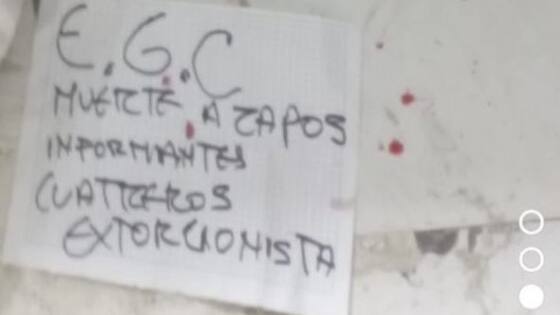 E.G.C
MUERTE A ZAPOS
INFORMANTES
CUATREROS
EXTORCIONISTA